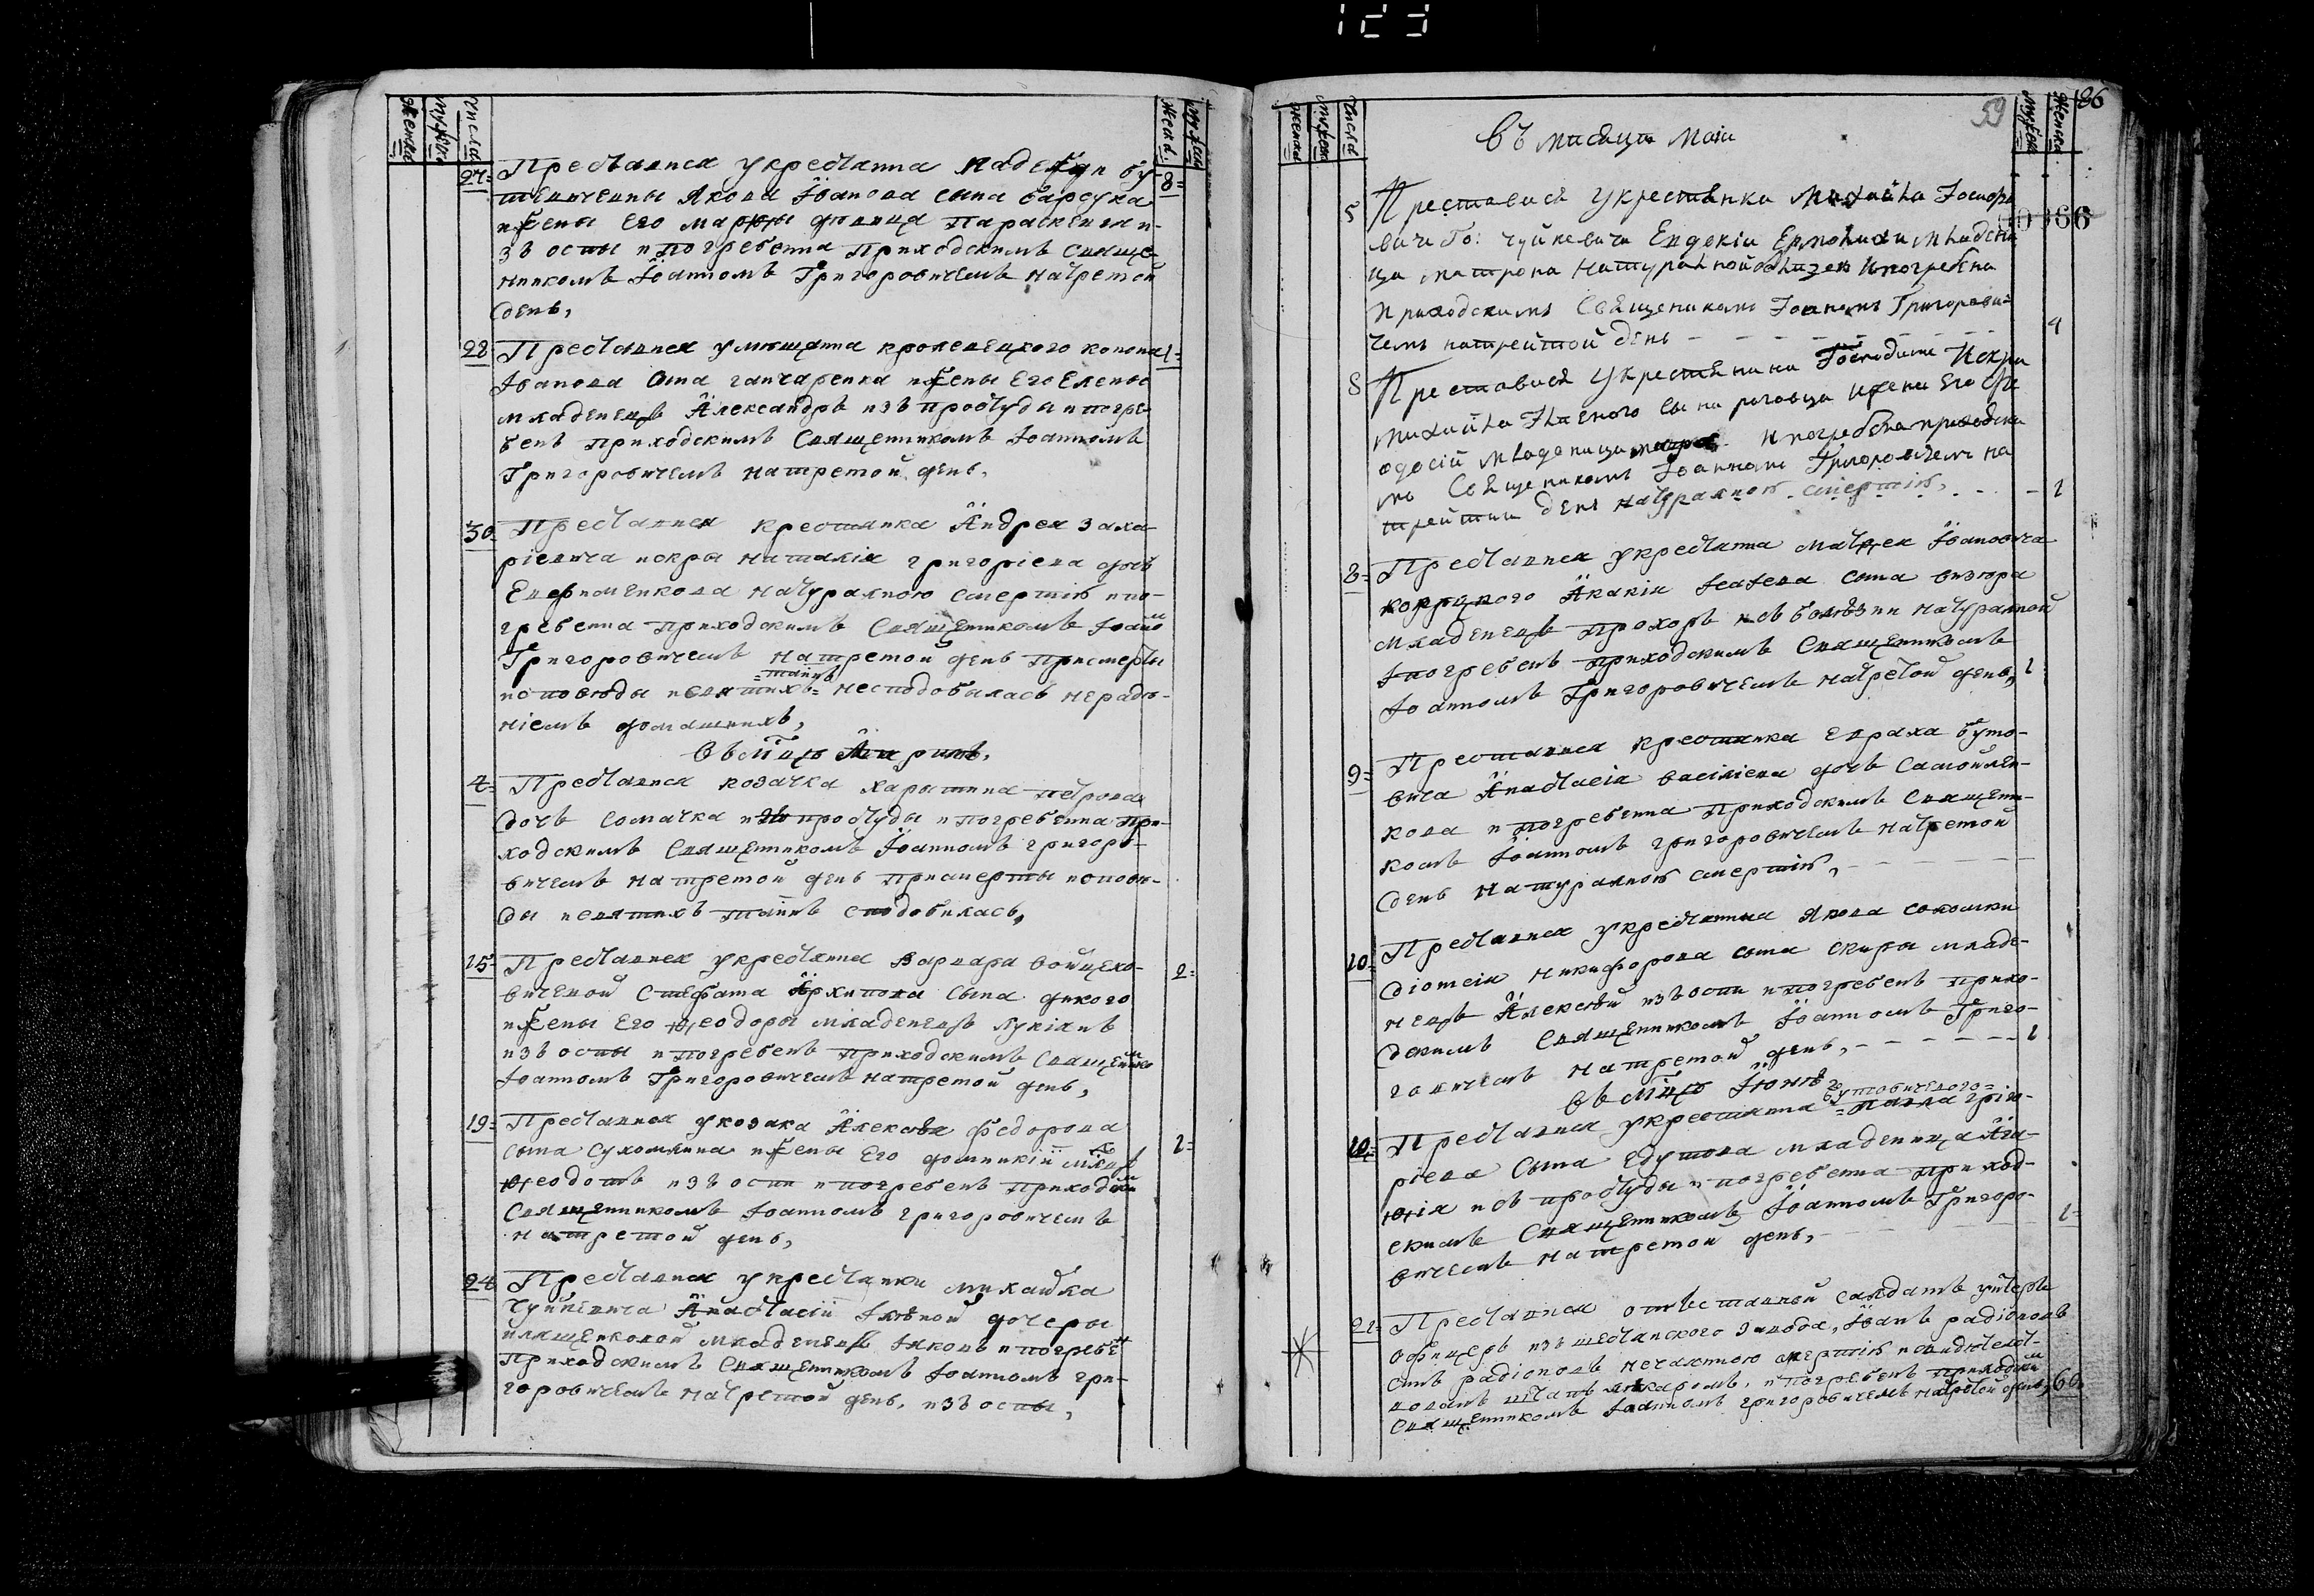 123
Числа
мужска
женска
Жен:
мужск
27=
Преставися у крестянина Надежди Бу-
шевичевны Якова Іванова сына барсука
и жены его Марфы дѣвица Параскевіа и-
зъ оспы и погребенна приходскимъ Свяще-
нникомъ Іоанномъ Григоровичемъ на третой
день,
8=
28
Преставися у мещанина кролевецкого конона
Іванова сына ганчаренка и жены его Елены
младенецъ Александръ изъ простуды и погре-
бенъ приходскимъ Священникомъ Іоанномъ
Григоровичемъ на третой день,
1=
30=
Преставися крестянка Андрея Заха-
ріевича искры Наталія григоріева дочь
Евфименкова натуралною смертію и по-
гребенна приходскимъ Священникомъ Іоано
Григоровичемъ на третой день при смерты
исповѣды и святихъ =таинъ= несподобилась нерадѣ-
ніемъ домашнихъ,
Въ мцѣ Априлѣ,
4=
Преставися козачка Харытина Петрова
дочь сомачка изъ простуды и погребенна при-
ходскимъ Священникомъ Іоанномъ григоро-
вичемъ на третой день при смерты исповѣ-
ды и святихъ таинъ сподобилась,
15=
Преставися у крестянина Варвара Войцехо-
вичевой Стефана Архипова сына дикого
и жены его Ѳеодоры младенецъ Лукіянъ
изъ оспы и погребенъ приходскимъ Священико
Іоанномъ Григоровичемъ на третой день,
2=
19=
Преставися у козака Алексѣя Федорова
сына Сухомлина и жены его домникіи младецъ
Ѳеодотъ изъ оспи и погребенъ приходскім
Священникомъ Іоанномъ григоровичемъ
на третой день,
1=
24
Преставися у крестянки михайла
Чуйкевича Анастасіи Іляной дочеры
илященковой младенецъ Іяковъ и погребен
Приходскимъ Священникомъ Іоанномъ гри-
горовичемъ на третой день, изъ оспы,
Числа
мужска
женска
мужска
Женска
59
86
366
Въ мисяци Маіи
5
Преставися у крестянки Михайла Іосифо
вича Го: чуйкевича Евдокіи Ермолихи младени
ца Матрона натуралной болизени и погребена
приходскимъ Священикамъ Іоаномъ Григорови-
чемъ на трейтой день
4
8
Преставися у крестянина Господини Искри
михайла Іляного сына роговца и жени его Фе
одосіи младеница и погребена приходски
мъ Священикомъ Іоанномъ Григоровичемъ на
трейтий день натуралною смертію,
1
8=
Преставися у крестянина Матфея Івановича
корруцкого Акакія сына визира
младенецъ Прохоръ изъ болѣзни натуралной
и погребенъ приходскимъ Священникомъ
Іоанномъ Григоровичемъ на третой день,
1
9=
Преставися крестянка Евраха буто-
вича Анастасія василіева дочь Самойлен-
кова и погребенна приходскимъ Священи-
комъ Іоанномъ григоровичемъ на третой
день натуралною смертію,
10=
Преставися у крестянина Якова Сокомки
Діонисія Никифорова сына скиры младе-
нецъ Алексѣй изъ оспи и погребенъ прихо-
дскимъ Священникомъ Іоанномъ Григо-
ровичемъ на третой день,
1
Въ мцѣ Іюнѣ
10=
Преставися у крестянина =бутовичевого= Павла Григо-
ріева сына Едутова младеница Ага-
Ѳія изъ простуды и погребенна приход-
скимъ Священникомъ Іоанномъ Григоро-
вичемъ на третой день,
1=
21=
Преставися отвставной салдатъ унтеръ
офицеръ изъ шостанского завода, Іванъ радіоновъ
сынъ радіоновъ нечаянною смертію и свидителст-
вованъ штапъ лѣкаромъ, и погребенъ приходским
Священникомъ Іоанномъ григоровичемъ на третой день,
60